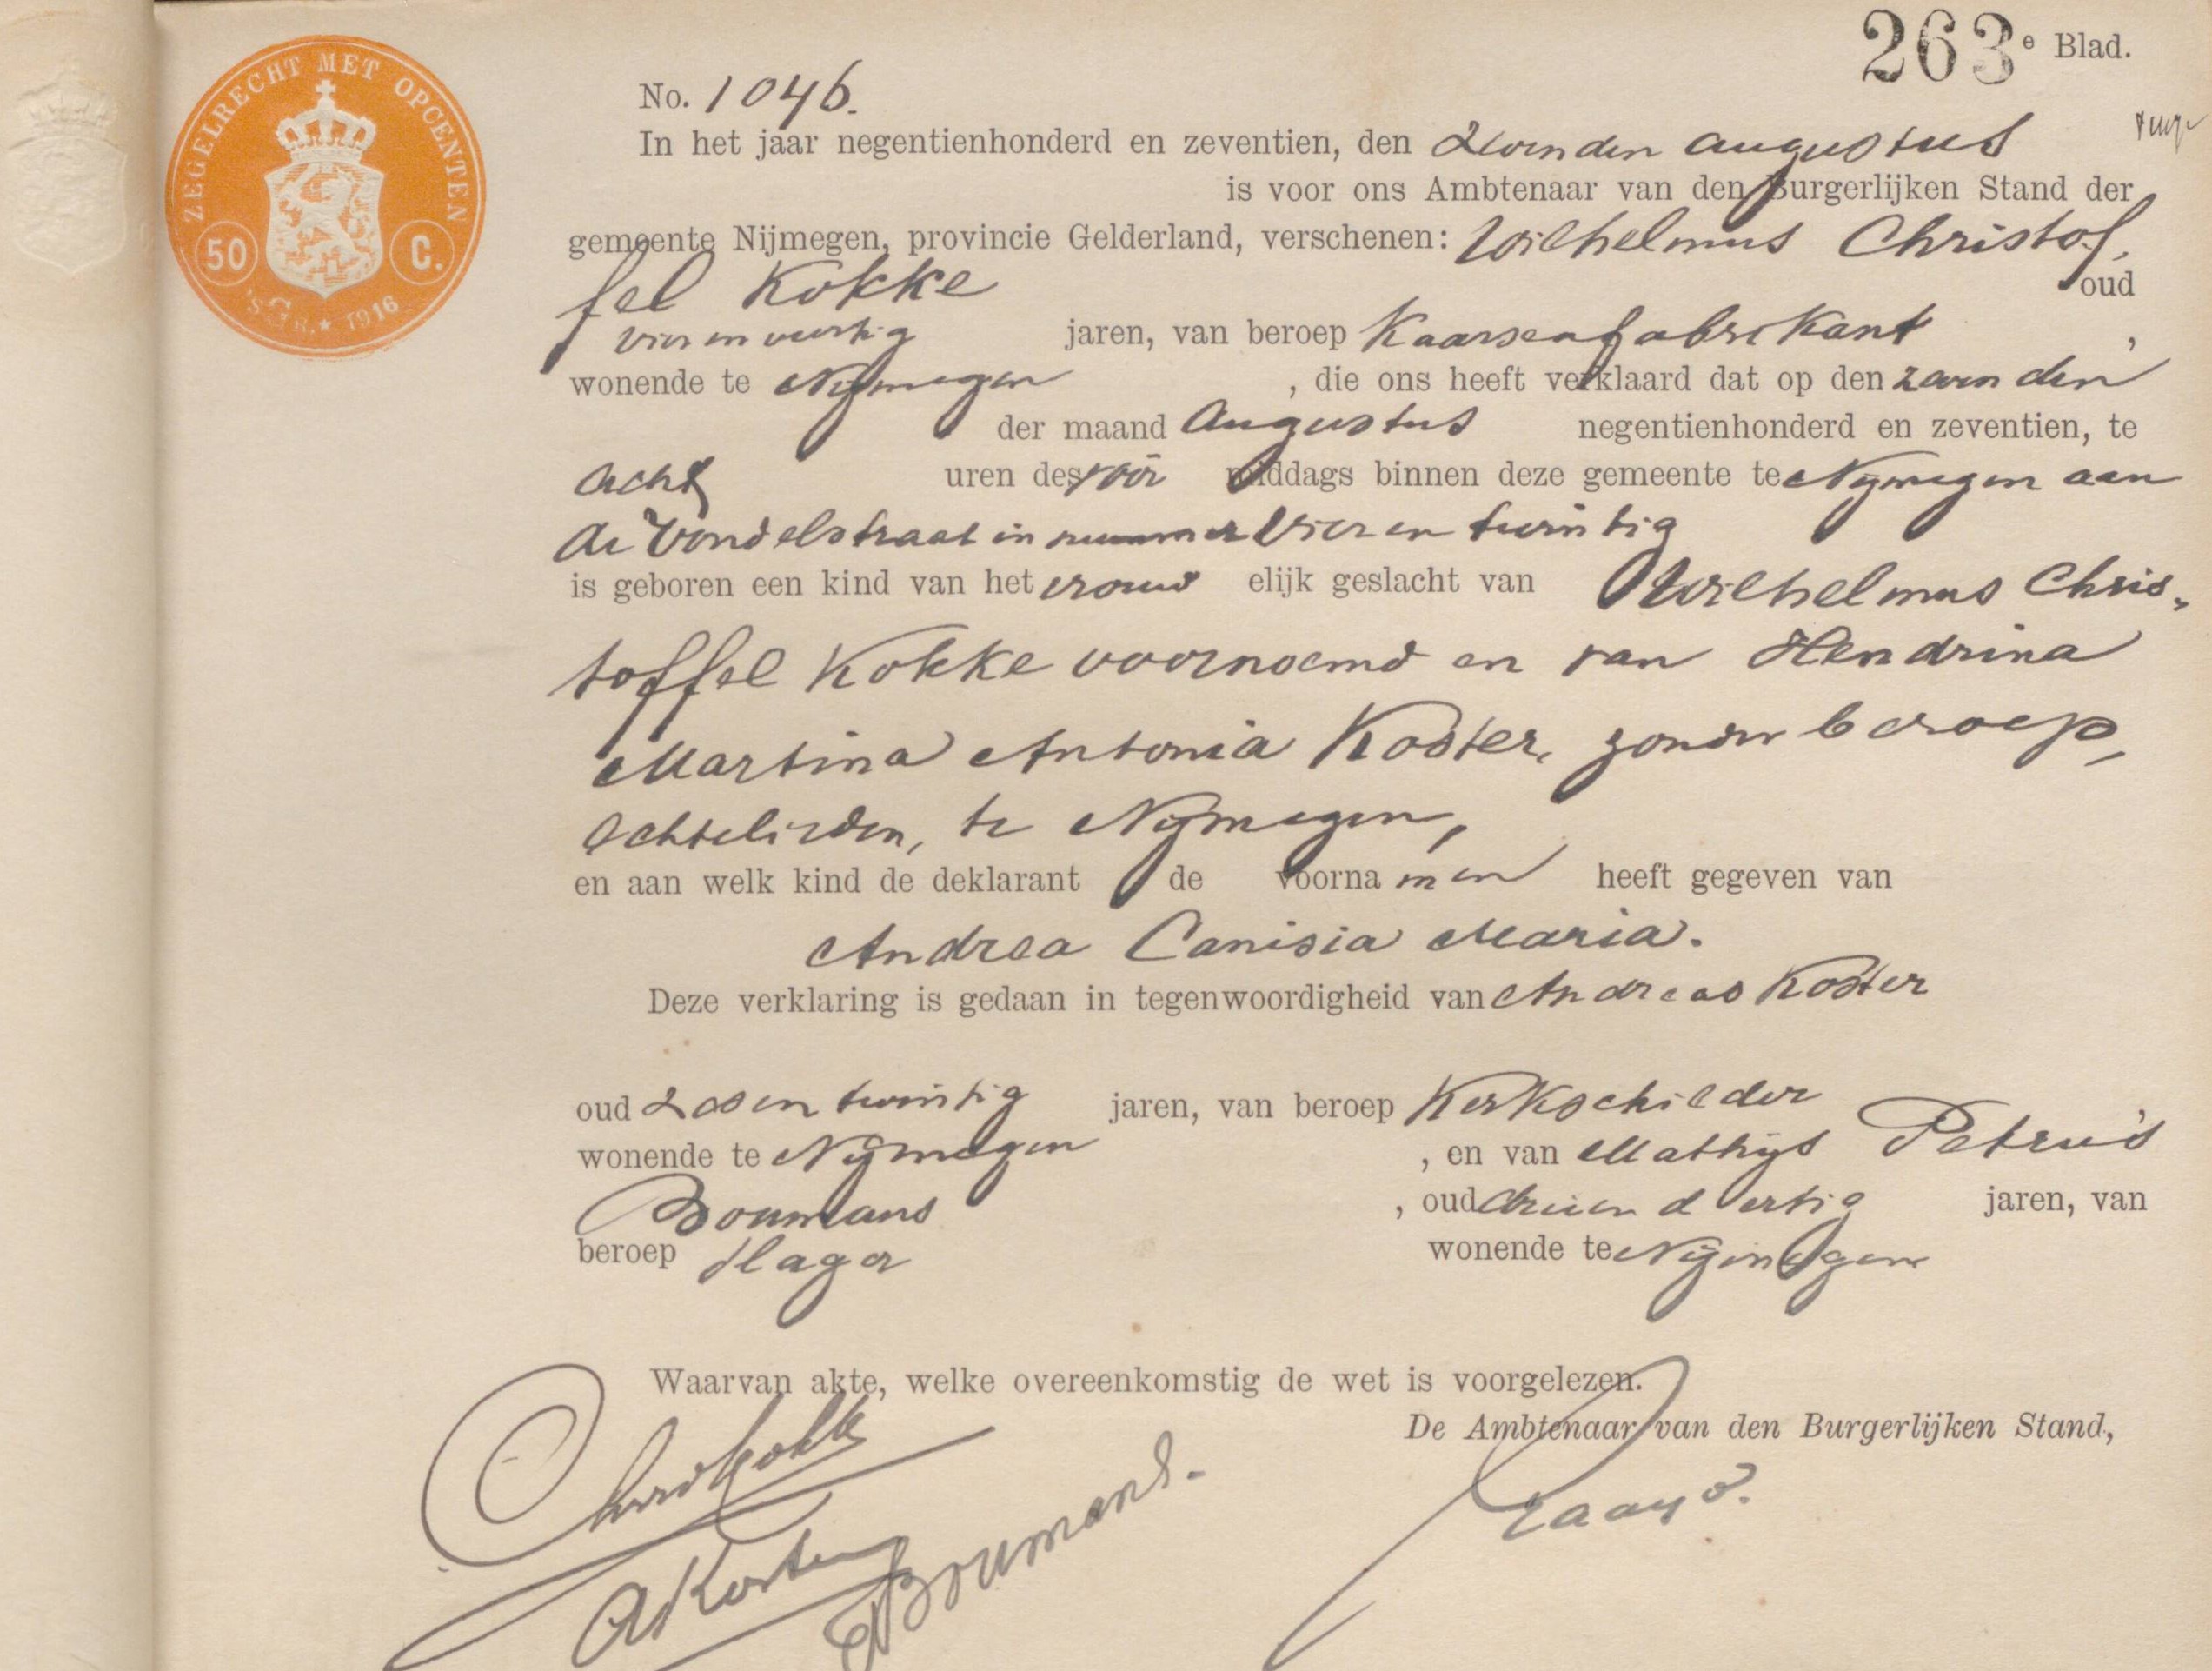 263e Blad.
ZEGELRECHT MET OPCENTEN
50 C.
'SGR. ★ 1916
No. 1046.
In het jaar negentienhonderd en zeventien, den zevenden augustus
is voor ons Ambtenaar van den Burgerlijken Stand der
gemeente Nijmegen, provincie Gelderland, verschenen: Wilhelmus Christof,
fel Kokke oud
vier en veertig jaren, van beroep Kaarsenfabrikant ,
wonende te Nijmegen , die ons heeft verklaard dat op den zevenden
der maand Augustus negentienhonderd en zeventien, te
acht uren des voor middags binnen deze gemeente te Nijmegen aan
de Vondelstraat in nummer vier en twintig
is geboren een kind van het vrouw elijk geslacht van Wilhelmus Chris„
toffel Kokke voornoemd en van Hendrina
Martina Antonia Koster, zonder beroep,
Echtelieden, te Nijmegen,
en aan welk kind de deklarant de voorna men heeft gegeven van
Andrea Canisia Maria.
Deze verklaring is gedaan in tegenwoordigheid van Andreas Koster
oud zes en twintig jaren, van beroep Kerkschilder
wonende te Nijmegen , en van Mathijs Petrus
Boumans , oud drie en dertig jaren, van
beroep Slager wonende te Nijmegen
Waarvan akte, welke overeenkomstig de wet is voorgelezen.
De Ambtenaar van den Burgerlijken Stand,
Chris Kokke
A Koster
Boumans.